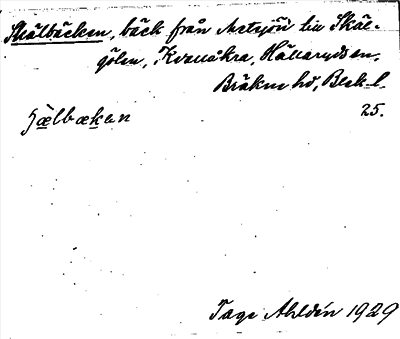 Skälbäcken, bäck från Arasjön till Skäl-
gölen, Kvarnåkra, Hällarydsn.
Bräkne hd, Blek. l.
25.
Tage Ahldén 1929